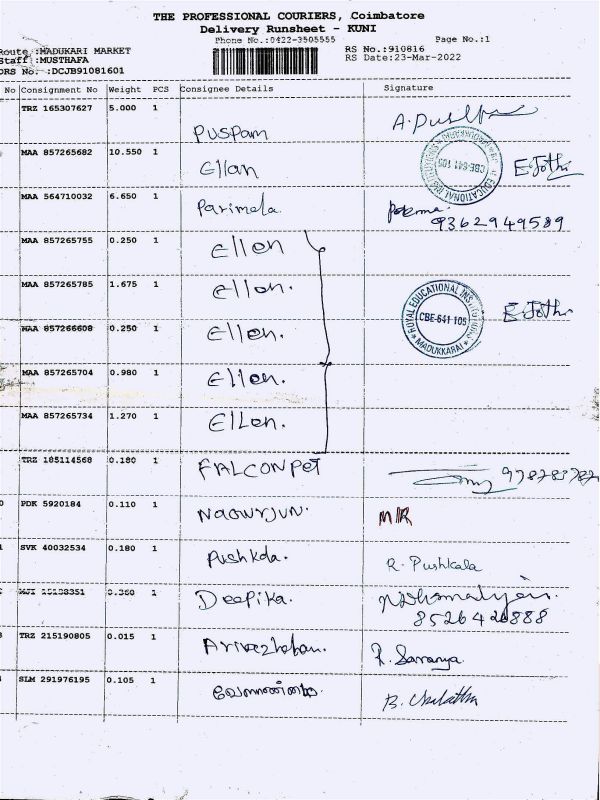 THE PROFESSIONAL COURIERS, Coimbatore
Delivery Runsheet - KUNI
Phone No.:0422-3505555 Page No.:1
Route :MADUKARI MARKET RS No.:910816
Staff :MUSTHAFA RS Date:23-Mar-2022
DRS No. :DCJB91081601
No Consignment No Weight PCS Consignee Details Signature
TRZ 165307627 5.000 1 Puspam
MAA 857265682 10.550 1 Ellan E. Jothi
ROYAL EDUCATIONAL INSTITUTIONS MADUKKARAI CBE-641 105
MAA 564710032 6.650 1 Parimala
9362949589
MAA 857265755 0.250 1 Ellen
MAA 857265785 1.675 1 Ellen.
ROYAL EDUCATIONAL INSTITUTIONS MADUKKARAI CBE-641 105 E. Jothi
MAA 857266608 0.250 1 Ellen.
MAA 857265704 0.980 1 Ellen.
MAA 857265734 1.270 1 Ellen.
TRZ 185114568 0.180 1 FALCONPET
PDK 5920184 0.110 1 MR
SVK 40032534 0.180 1 R. Pushkala
1 Deepika.
8526420888
TRZ 215190805 0.015 1 R. Saranya
SLM 291976195 0.105 1